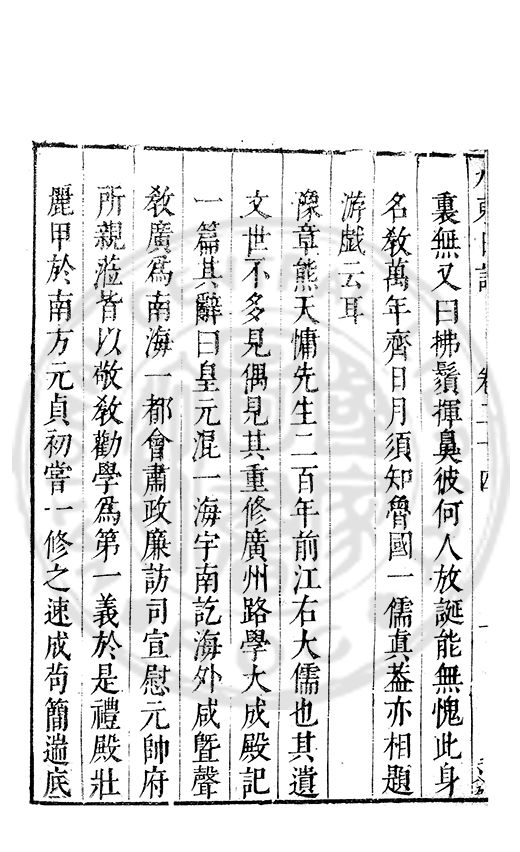 水東日記 卷二十四 一
裏無又曰拂鬚揮鼻彼何人放誕能無愧此身
名敎萬年齊日月須知魯國一儒真葢亦相題
游戲云耳
豫章熊天慵先生二百年前江右大儒也其遺
文世不多見偶見其重修廣州路學大成殿記
一篇其辭曰皇元混一海宇南訖海外咸曁聲
敎廣爲南海一都會肅政廉訪司宣慰元帥府
所親蒞皆以敬敎勸學爲第一義於是禮殿壯
麗甲於南方元貞初嘗一修之速成苟簡遄底